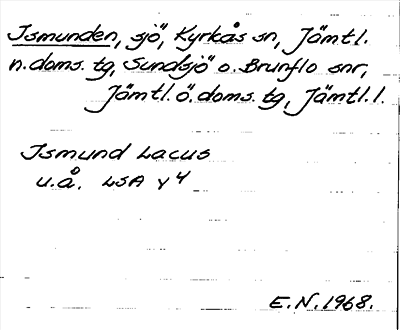 Ismunden, sjö, Kyrkås sn, Jämtl.
n. doms. tg, Sundsjö o. Brunflo snr,
Jämtl. ö. doms. tg, Jämtl. l.
Ismund Lacus
u.å. LSA Y 4
E.N. 1968.